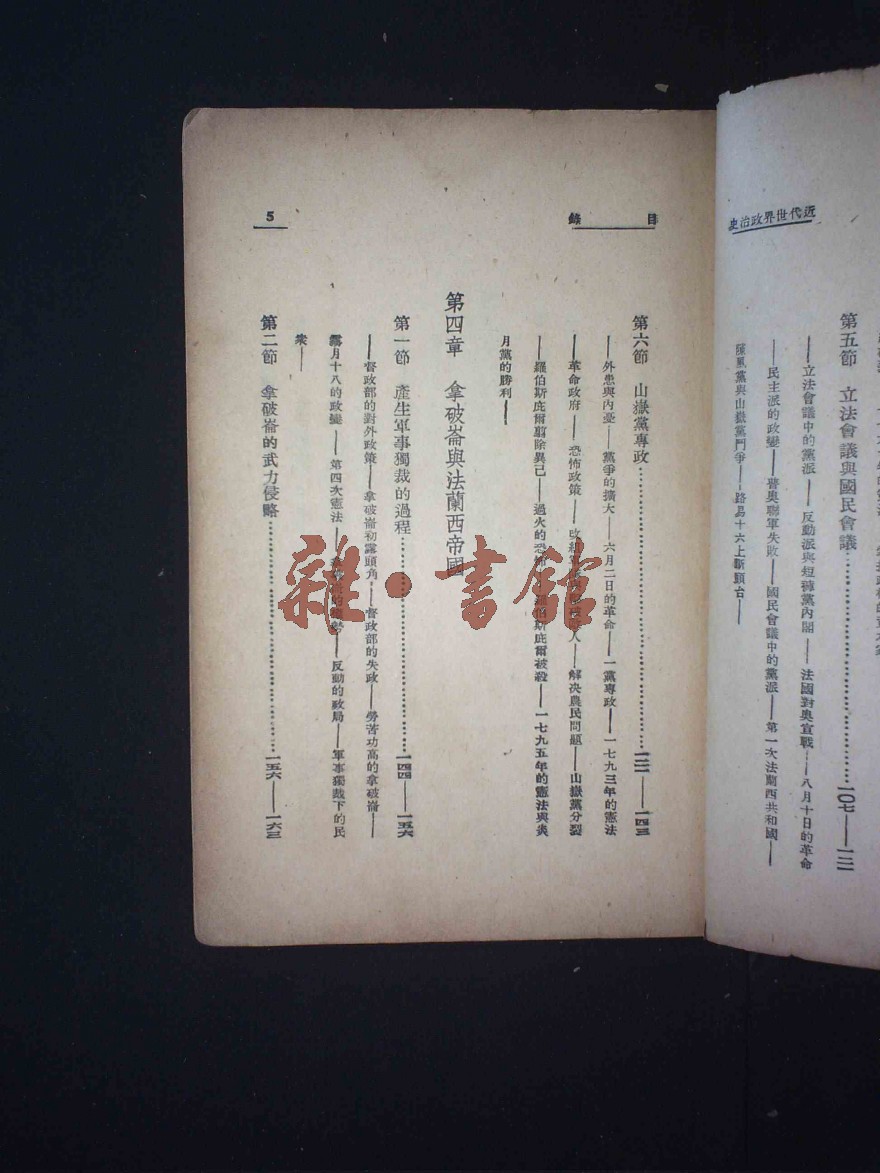 近代世界政治史
第五節　立法會議與國民會議…………一〇七——一二一
——立法會議中的黨派——反動派與短褲黨內閣——法國對奧宣戰——八月十日的革命
——民主派的政變——普奧聯軍失敗——國民會議中的黨派——第一次法蘭西共和國——
黨與山嶽黨鬥爭——路易十六上斷頭台——
目錄
5
第六節　山嶽黨專政…………一二一——一四三
——外患與內憂——黨爭的擴大——六月二日的革命——一黨專政——一七九三年的憲法
——革命政府——恐怖政策——改組軍人——解決農民問題——山嶽黨分裂
——羅伯斯庇爾翦除異己——過火的恐怖——羅伯斯庇爾被殺——一七九五年的憲法與炎
月黨的勝利——
第四章　拿破崙與法蘭西帝國
第一節　產生軍事獨裁的過程…………一四四——一五六
——督政部的對外政策——拿破崙初露頭角——督政部的失政——勞苦功高的拿破崙——
霧月十八的政變——第四次憲法——反動的政局——軍事獨裁下的民
衆——
第二節　拿破崙的武力侵略…………一五六——一六三
雜·書館